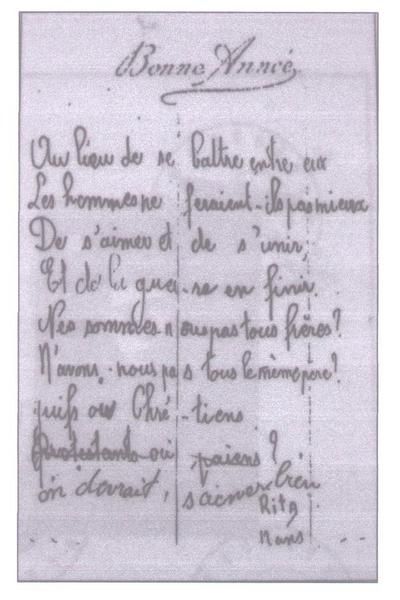 Bonne Année
Au lieu de se battre entre eux
Les hommes ne feraient-ils pas mieux
De s'aimer et de s'unir,
Et de la guer-re en finir.
Nes sommes n ous pas tous frères?
N'avons-nous pa s tous le même père?
juifs ou Chré-tiens
Protestants ou païens?
on devrait, s'aimer bien
Rita
Nans